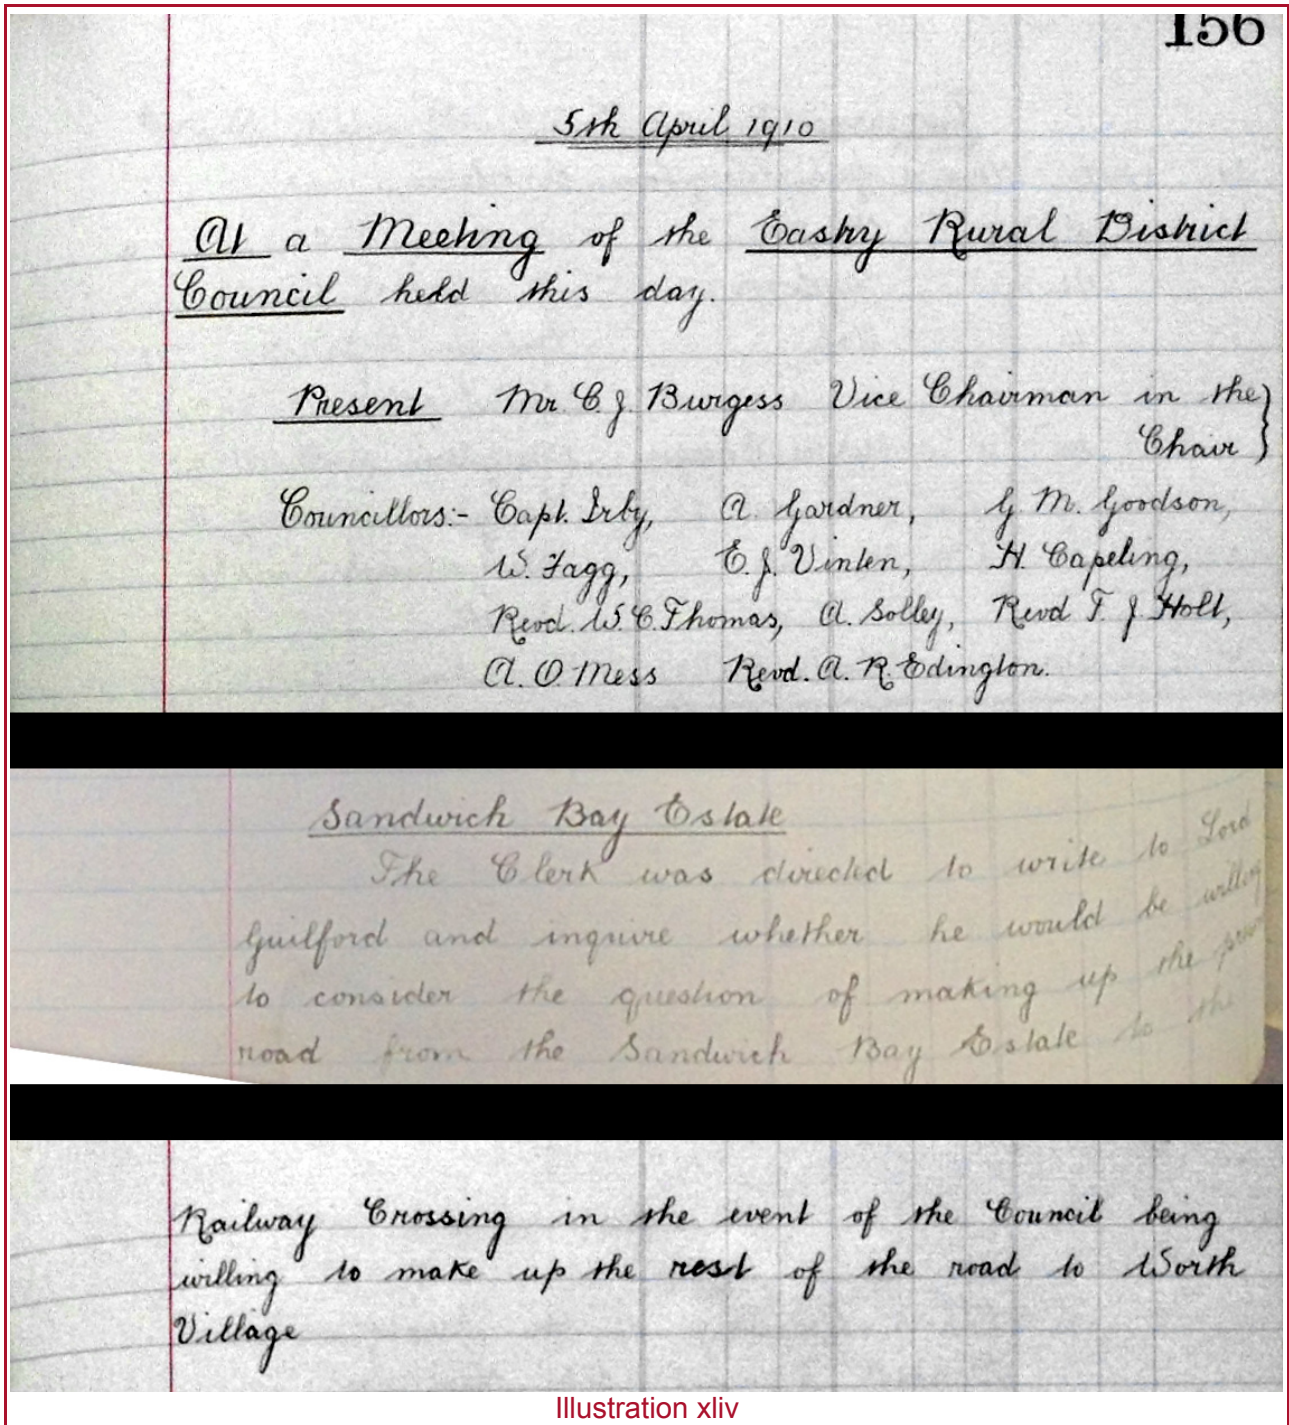 156
5th April 1910
At a Meeting of the Eastry Rural District
Council held this day.
Present Mr. C. J. Burgess Vice Chairman in the
Chair
Councillors:- Capt. Irby, A. Gardner, G M. Goodson,
W. Fagg, E. J. Vinten, H. Capeling,
Revd. W. C. Thomas, A. Solley, Revd T. J. Holt,
A. O. Mess Revd. A. R. Edington.
Sandwich Bay Estate
The Clerk was directed to write to Lord
Guilford and inquire whether he would be willing
to consider the question of making up the
road from the Sandwich Bay Estate to the
Railway Crossing in the event of the Council being
willing to make up the rest of the road to Worth
Village
Illustration xliv